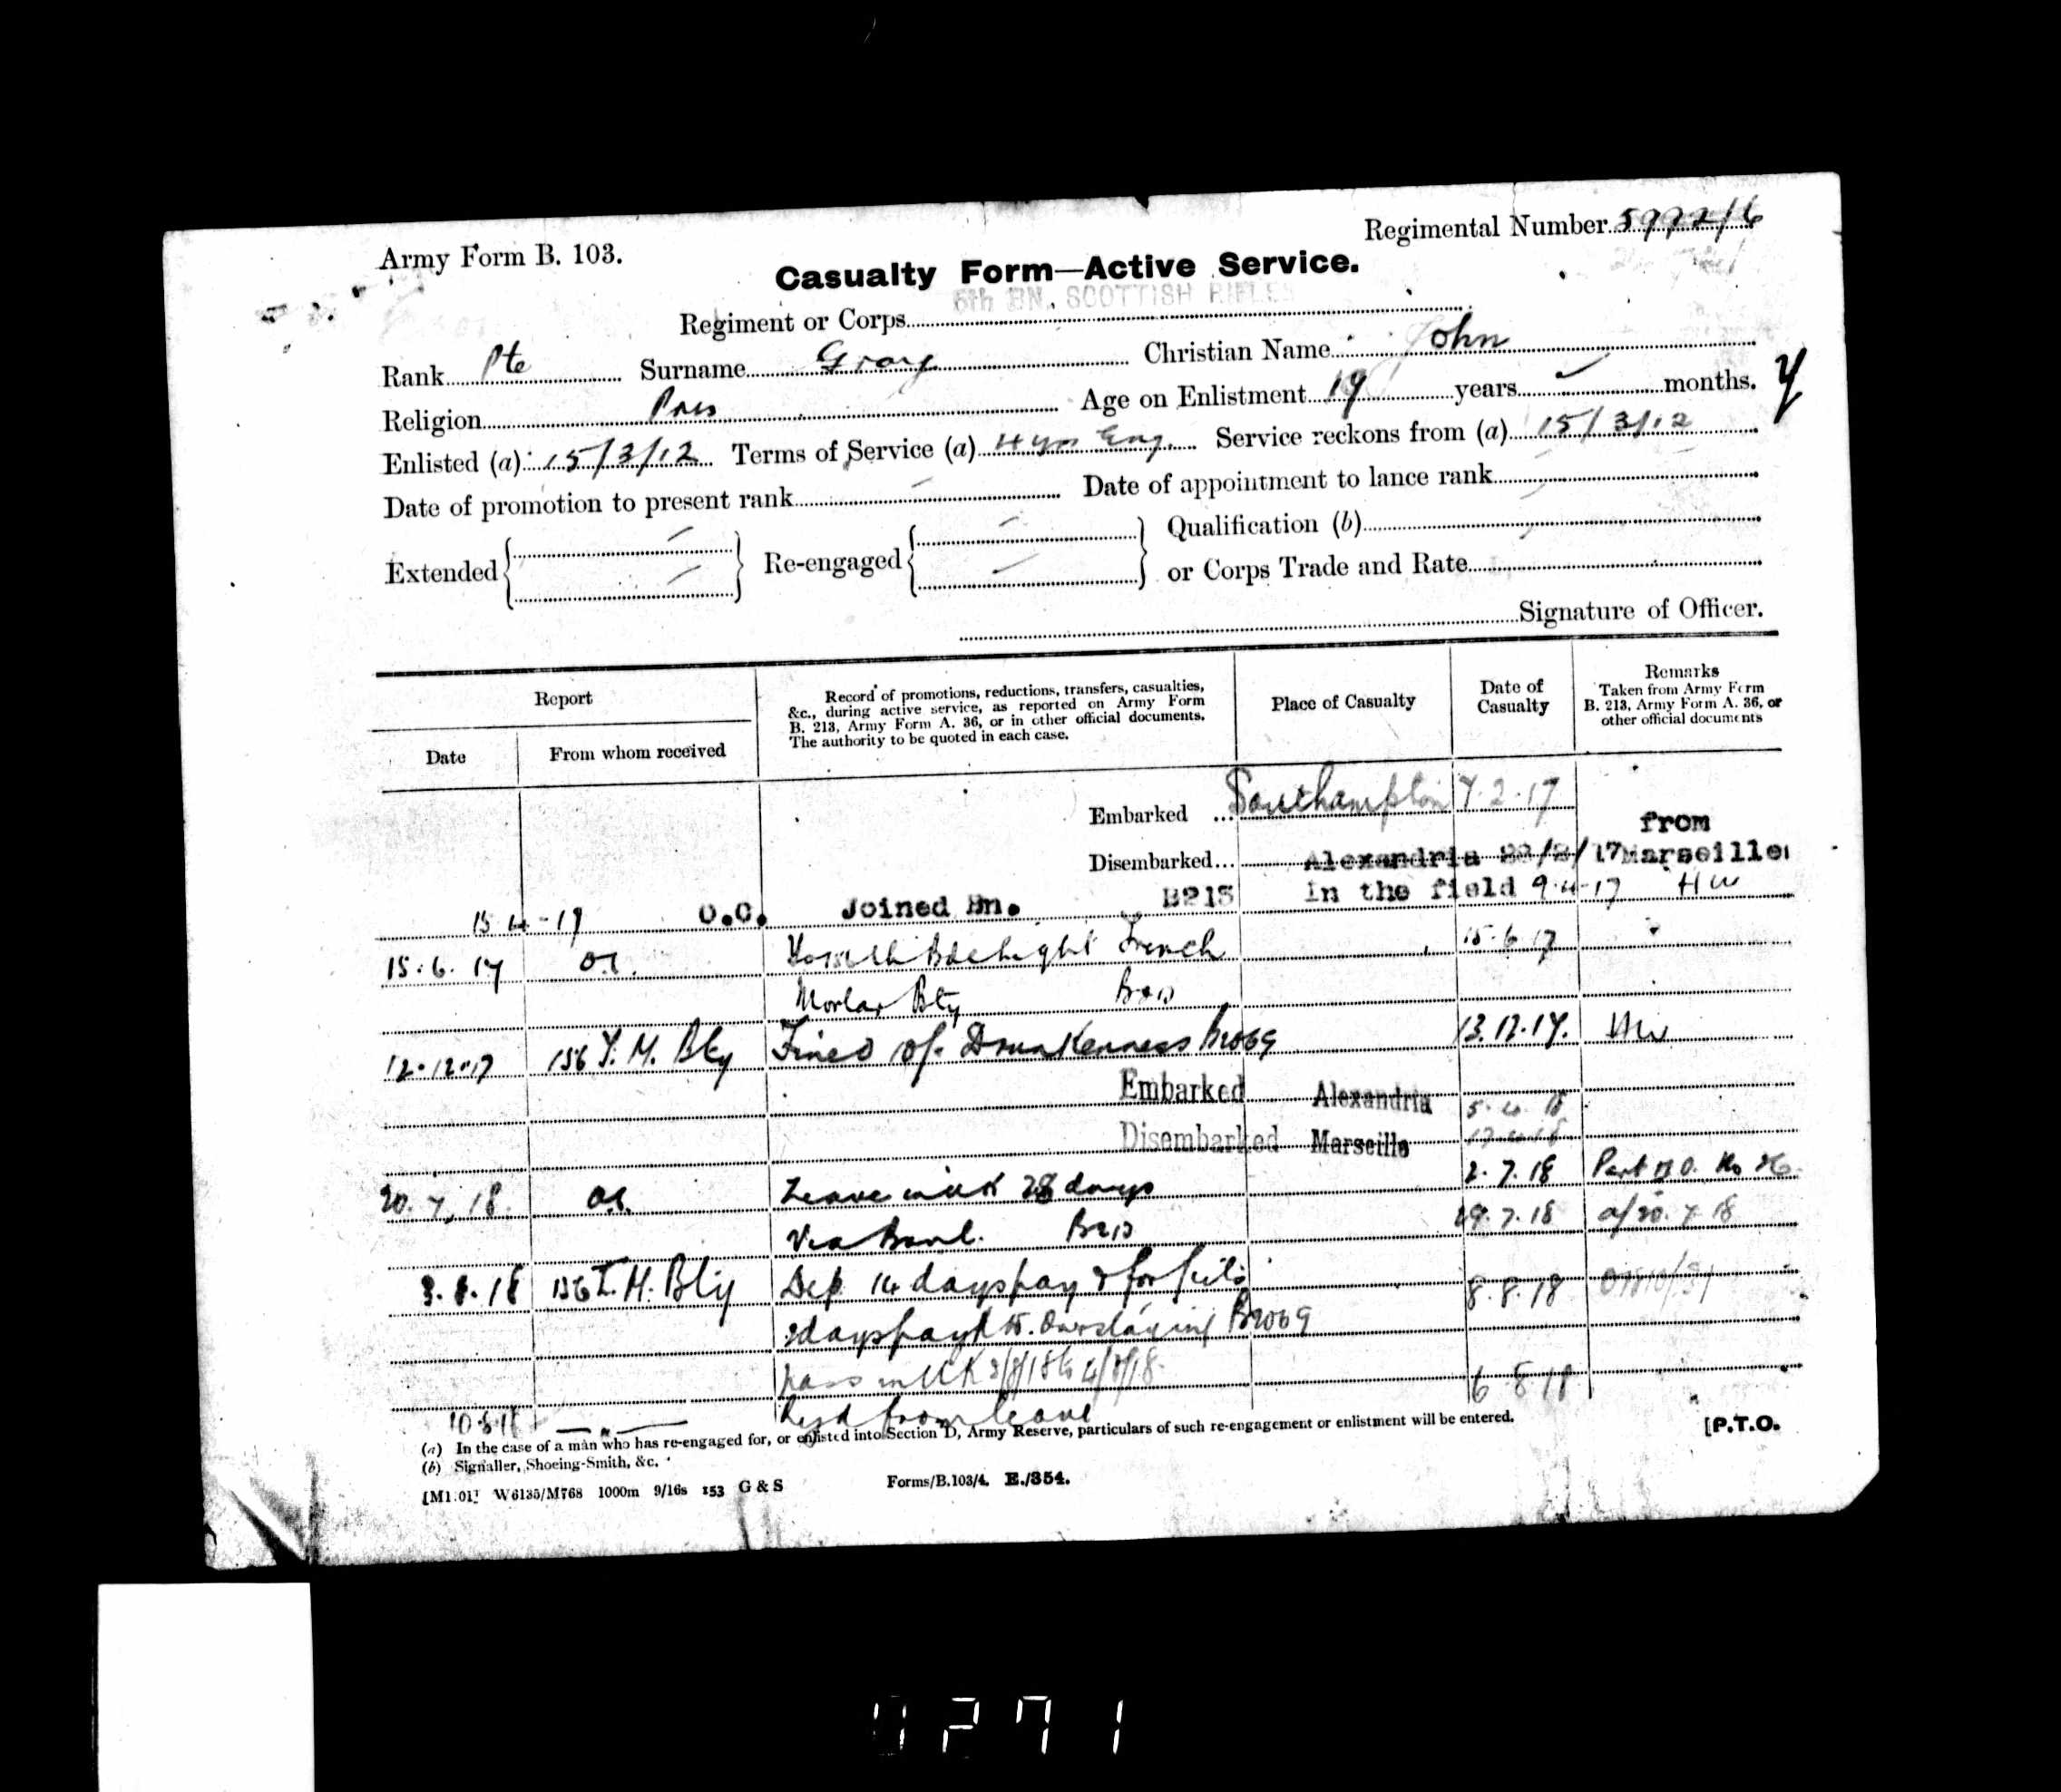 Army Form B. 103.
Regimental Number
Casualty Form—Active Service.
Regiment or Corps 5th BN. SCOTTISH RIFLES
Rank Pte Surname Gray Christian Name John
Religion Pres Age on Enlistment 19 years ✓ months.
Enlisted (a) 15/3/12 Terms of Service (a) 4 yrs Eng. Service reckons from (a) 15/3/12
Date of promotion to present rank Date of appointment to lance rank
Extended Re-engaged Qualification (b)
or Corps Trade and Rate
Signature of Officer.
Report
Date From whom received
Record of promotions, reductions, transfers, casualties, &c., during active service, as reported on Army Form B. 213, Army Form A. 36, or in other official documents. The authority to be quoted in each case.
Place of Casualty
Date of Casualty
Remarks
Taken from Army Form B. 213, Army Form A. 36, or other official documents
Embarked ... Southampton 7.2.17
from
Disembarked... Alexandria /17 Marseilles
15 4-17 O.C. Joined Bn. B213 In the field 9.4-17 HW
15.6.17 To 156th Bde Light Trench 15.6.17
Mortar Bty B213
12.12.17 156 T.M. Bty Fined 10/- Drunkenness B2069 13.12.17. HW
Embarked Alexandria 5.4.18
Disembarked Marseille
2.7.18 Part II O. No 26
20.7.18. Leave in UK 28 days
Via Boul. B213 19.7.18 d/20.7.18
8.18 156 T.M. Bty Dep. 14 days pay & forfeits 8.8.18
2 days pay Overstaying B2069
pass in UK 2/8/18 to 4/8/18
10.8.18 — " — Rejd from leave 6 8 18
(a) In the case of a man who has re-engaged for, or enlisted into Section D, Army Reserve, particulars of such re-engagement or enlistment will be entered.
[P.T.O.
(b) Signaller, Shoeing-Smith, &c.
W6135/M768 1000m 9/16s 153 G & S Forms/B.103/4. E./354.
0271